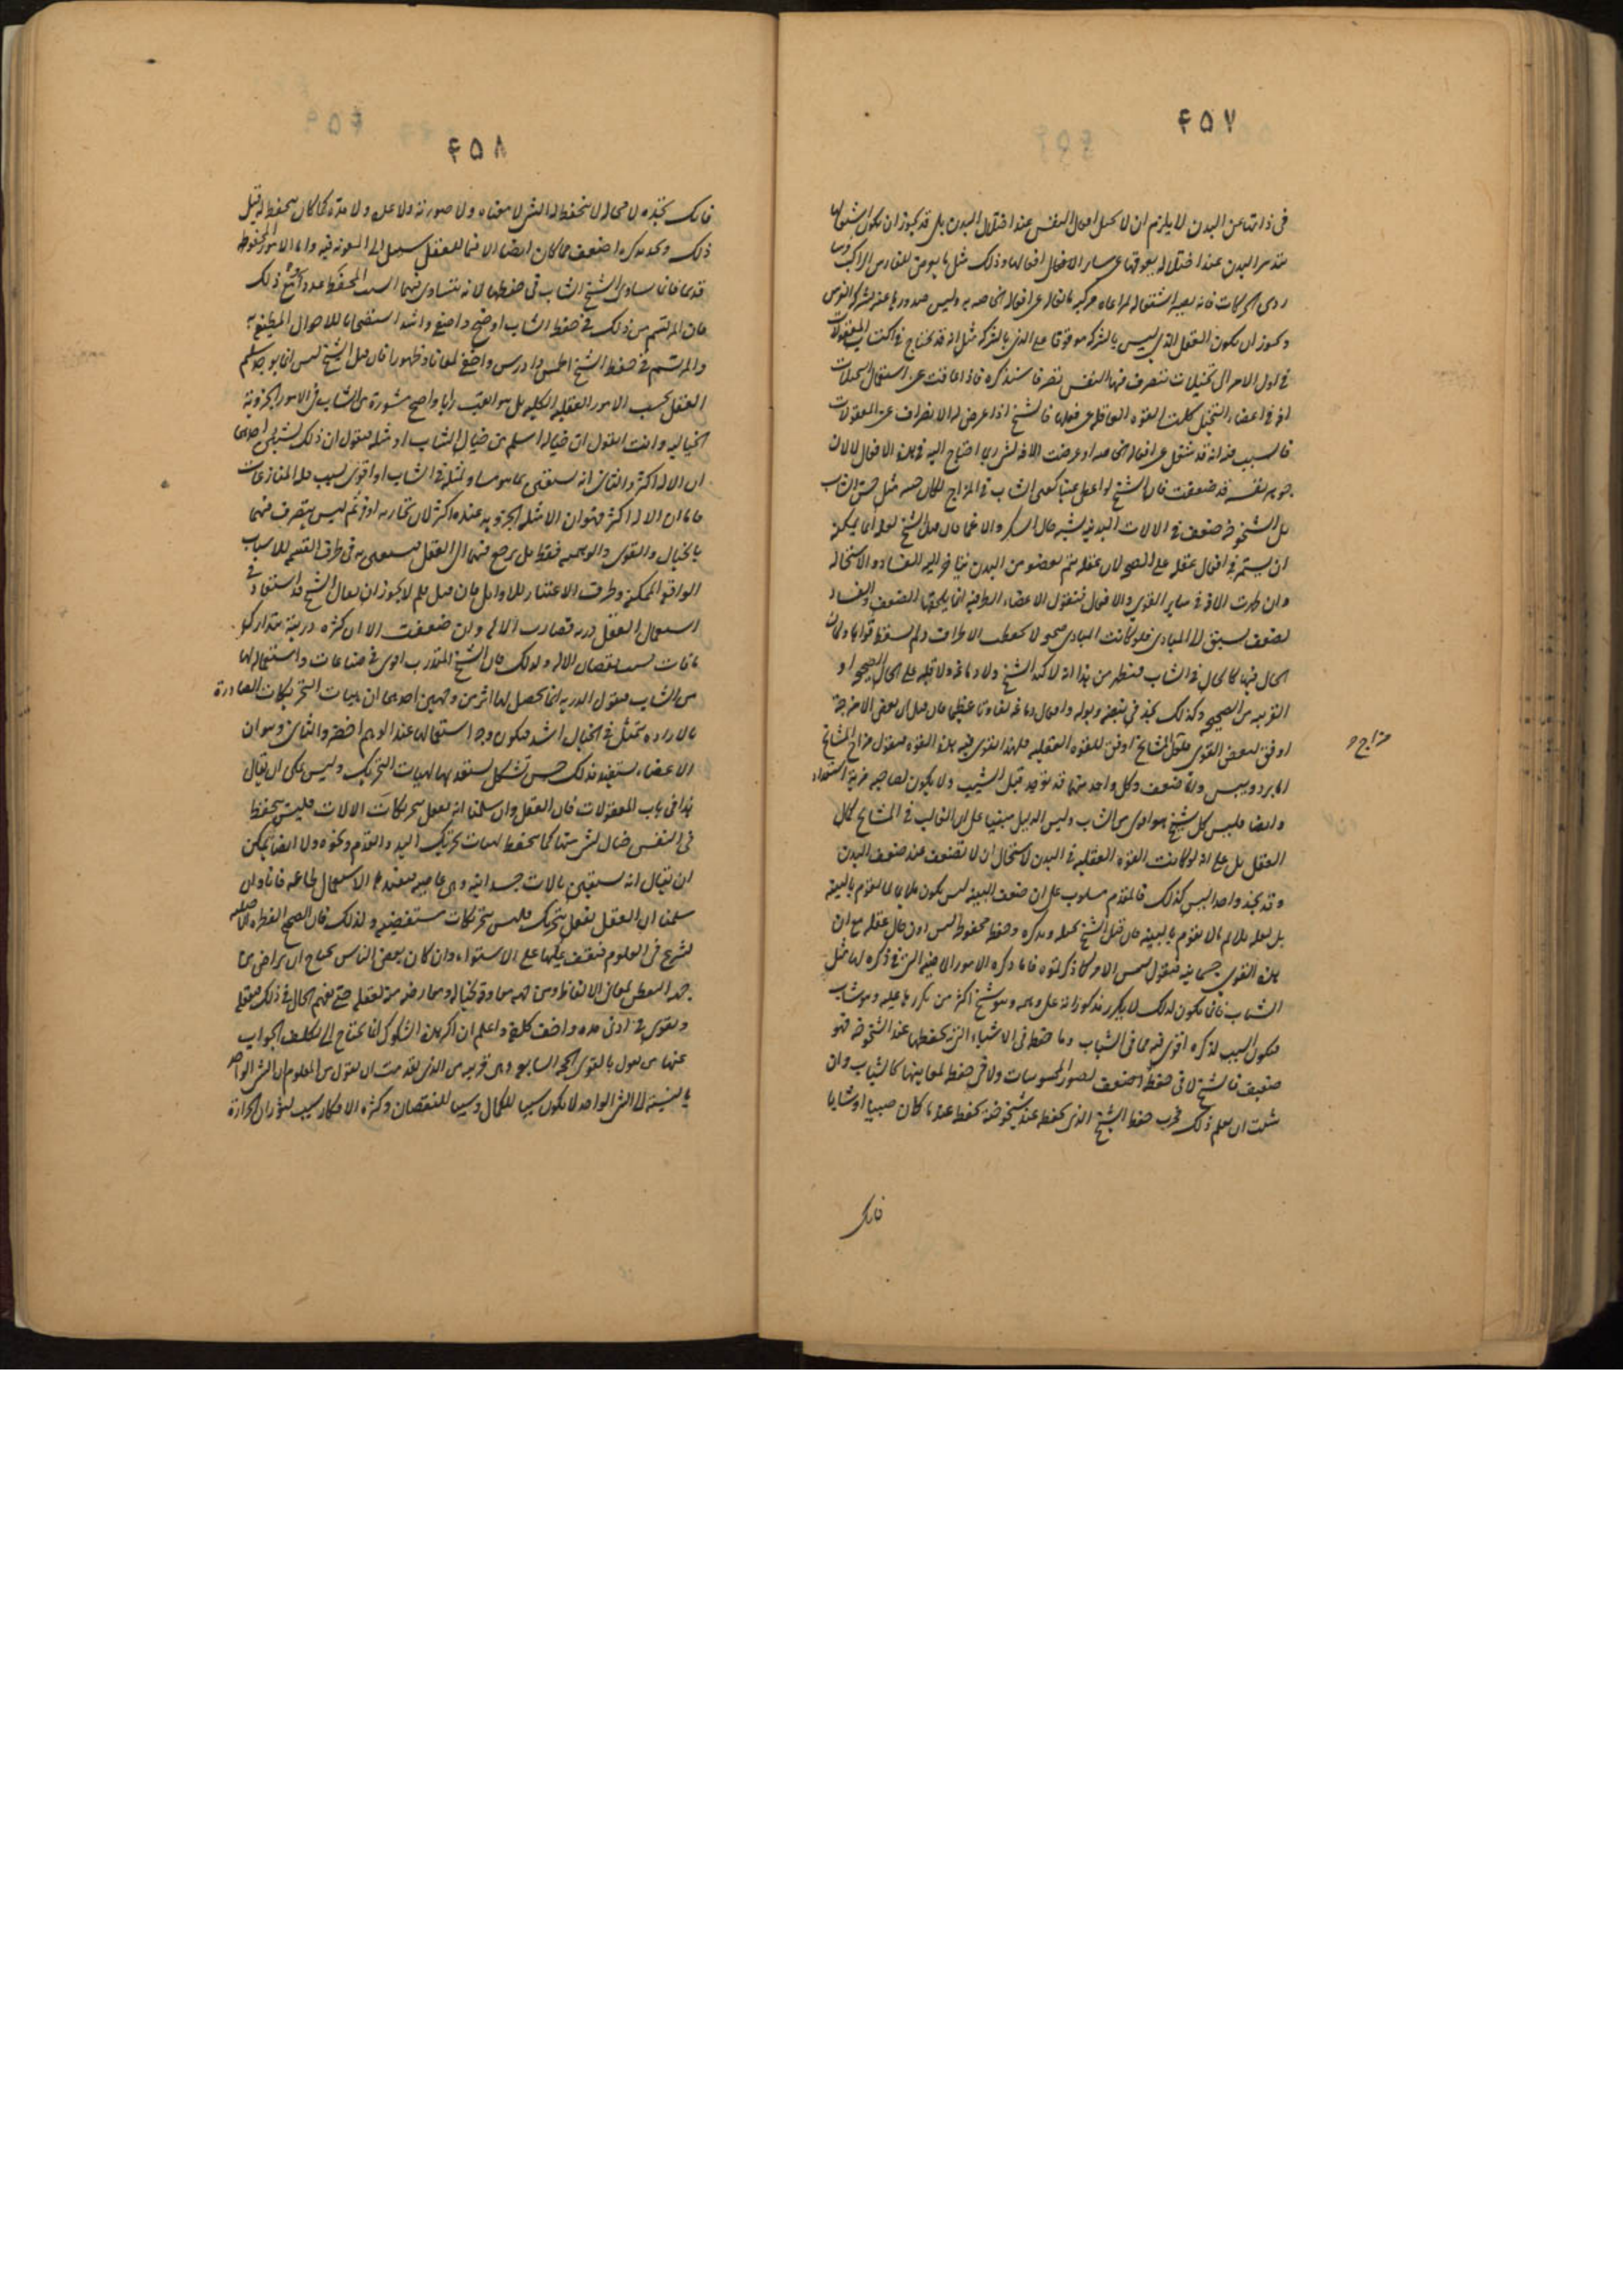 ۴۵۷
في ذاتنا عن البدن لا يلزم ان لا يختل افعال النفس عند اختلال البدن بل قد يجوز ان يكون اشتغالها
بتدبير البدن عند اختلاله يعوقها عن ساير الافعال افعالها وذلك مثل ما يعرض للفارس الراكب فرسا
ردى الحركات فانه يصير اشتغاله لمراعاة مركبه عن افعاله الخاصه به وليس صدورها عنه بشركة الفرس
ويجوز ان يكون العقل الذي ليس بالشركه موقوفا على الذي بالشركه مثل انه قد يحتاج في اكتساب المعقولات
في اول الامر الى تخيلات تتصرف فيها النفس تصرفا سنذكره فاذا عاقت عن استعمال التخيلات
افة في اعضاء التخيل كلت القوة العاقله عن فعلها فالشيخ اذا عرض له الانصراف عن المعقولات
فالسبب فيه انه قد شغل عن افعاله الخاصه او عرضت الافه لشى احتاج اليه في هذه الافعال لا لان
جوهر نفسه قد ضعفت فان الشيخ لو اعطى عينا كعين الشاب في المزاج لكان حسه مثل حس الشاب
بل الشيخوخه ضعف في الالات البدنيه يشبه حال السكر والاغما فان قيل الشيخ لعله انما يمكنه
ان يستمر في افعال عقله على الصحه لان عقله يتم بعضو من البدن يتاخر اليه الفساد والاستحاله
وان ظهرت الافه في ساير القوى والافعال فنقول الاعضاء الطرفيه انما يلحقها الضعف والفساد
لضعف يسبق الى المبادى فلو كانت المبادى صحيحه لا تحفظ الاطراف ولم يسقط قواها ولكان
الحال فيها كالحال في الشاب فيظهر من هذا انه لا كبد الشيخ ولا دماغه ولا قلبه على الحال الصحيحه او
القريبه من الصحيحه وكذلك تجد في نبضه وبوله وافعال دماغه تفاوتا عظيما فان قيل ان بعض الامزجه
اوفق لبعض القوى فلعل مزاج المشايخ اوفق للقوة العقليه فلهذا تقوى فيه هذه القوة فنقول مزاج المشايخ
اما برد ويبس واما ضعف وكل واحد منهما قد يوجد قبل الشيب ولا يكون لصاحبه مزية استعداد
وايضا فليس كل شيخ هو اقوى من الشاب وليس الدليل مبنيا على ان الغالب في المشايخ كمال
العقل بل على انه لو كانت القوة العقليه في البدن لاستحال ان لا تضعف عند ضعف البدن
وقد نجد واحدا ليس كذلك فالمقدم مسلوب على ان ضعف البنيه ليس يكون ملايما لما يقوم بالبنيه
بل لعله يلايم ما لا يقوم بالبنيه فان قيل الشيخ تخيله وتذكره وحفظ محفوظه ليس ادون حال عقله مع ان
هذه القوى جسمانيه فنقول ليس الامر كما ذكرتموه فاما تذكره الامور الماضيه التي في ذكره لها مثل
الشاب فانما يكون لذلك لا تكرر مذكوراته على وهمه وهو شيخ اكثر من تكررها عليه وهو شاب
فيكون السبب لذكره اقوى فيه مما في الشباب وما حفظه في الاشياء التي يحفظها عند الشيخوخه فهو
ضعيف فالشيخ لا في حفظه اضعف لصور المحسوسات ولا في حفظ لمعانيها كالشباب وان
شئت ان تعلم ذلك فجرب حفظ الشيخ الذي يحفظه عند شيخوخته بحفظ عند ما كان صبيا او شابا
مزاج
فانك
۴۵۸
فانك تجده لا محاله لا ينحفظ له الشى لا معناه ولا صورته ولا عمله ولا مدة كما كان ينحفظ له قبل
ذلك وتجد تذكره اضعف مما كان ايضا الا فيما للعقل سبيل الى المعونه فيه واما الامور المحفوظه
قديما فانما يساوى الشيخ الشاب في حفظها لانه يتساوى فيهما السبب المحفظ عددا ومع ذلك
فان المرتسم من ذلك في حفظ الشاب اوضح واصنع واشد استصحابا للاحوال المطيفة به
والمرتسم في حفظ الشيخ اطمس وادرس واخفى لمعانا وظهورا فان قيل الشيخ ليس انما يوجد سليم
العقل بحسب الامور العقليه الكليه بل هو اثقب رايا واصح مشورة من الشاب في الامور الجزوية
الخياليه وانت تقول ان خياله اسلم من خيال الشاب او مثله فنقول ان ذلك لشيئين احدهما
ان الاله اكثر والثانى انه يستعين بما هو مساو لمثله في الشاب او اقوى بسبب قلة المنازعات
فاما ان الاله اكثر فهو ان الامثله الجزويه عنده اكثر لان تجاربه اوفر ثم ليس يتصرف فيها
بالخيال والقوى والوهميه فقط بل يرجع فيها الى العقل فيستعين به في طرق القسمه للاسباب
الواقعة الممكنة وطرق الاعتبار للاوايل فان قيل لم لا يجوز ان يقال الشيخ قد استفاد في
استعمال العقل دربه فصارت الاله وان ضعفت الا ان كثرة دربته يتدارك
ما فات بسبب نقصان الاله ولذلك فان الشيخ المدرب اقوى في صناعات واستعماله لها
من الشاب فنقول الدربه انما يحصل لها اثر من وجهين احدهما ان هيات التحريكات الصادرة
بالاراده يتمثل في الخيال اشد فيكون وجه استعمالها عند الوهم احضر والثانى وهو ان
الاعضاء يستفيد بذلك حسن تشكل يستعد بها لهيات التحريك وليس يمكن ان يقال
هذا في باب المعقولات فان العقل وان سلمنا انه يفعل بتحريكات الالات فليس يحفظ
في النفس خيال لشى منها كما يحفظ لهيات تحريك اليد والقدم ونحوه ولا ايضا يمكن
ان يقال انه يستعين بالات جسدانيه وهي عاصيه فيفيدها الاستعمال طاعه فانا وان
سلمنا ان العقل يفعل بتحريك فليس بتحريكات مستعصيه ولذلك فان الصحيح الفطره الاصليه
يشرع في العلوم فيقف عليها على الاستواء وان كان بعض الناس يحتاج ان يراض بما
ويقوى في ادنى مده واخف كلفة واعلم ان اكثر هذه الشكوك انما يحتاج الى تكلف الجواب
عنها من يقول بالقوى الحجة السابعه وهي قريبه من الذى تقدمت ان نقول من المعلوم ان الشى الواحد
بالنسبة الى الشى الواحد لا يكون سببا للكمال وسببا للنقصان وكثرة الافكار سبب لثوران الحرارة